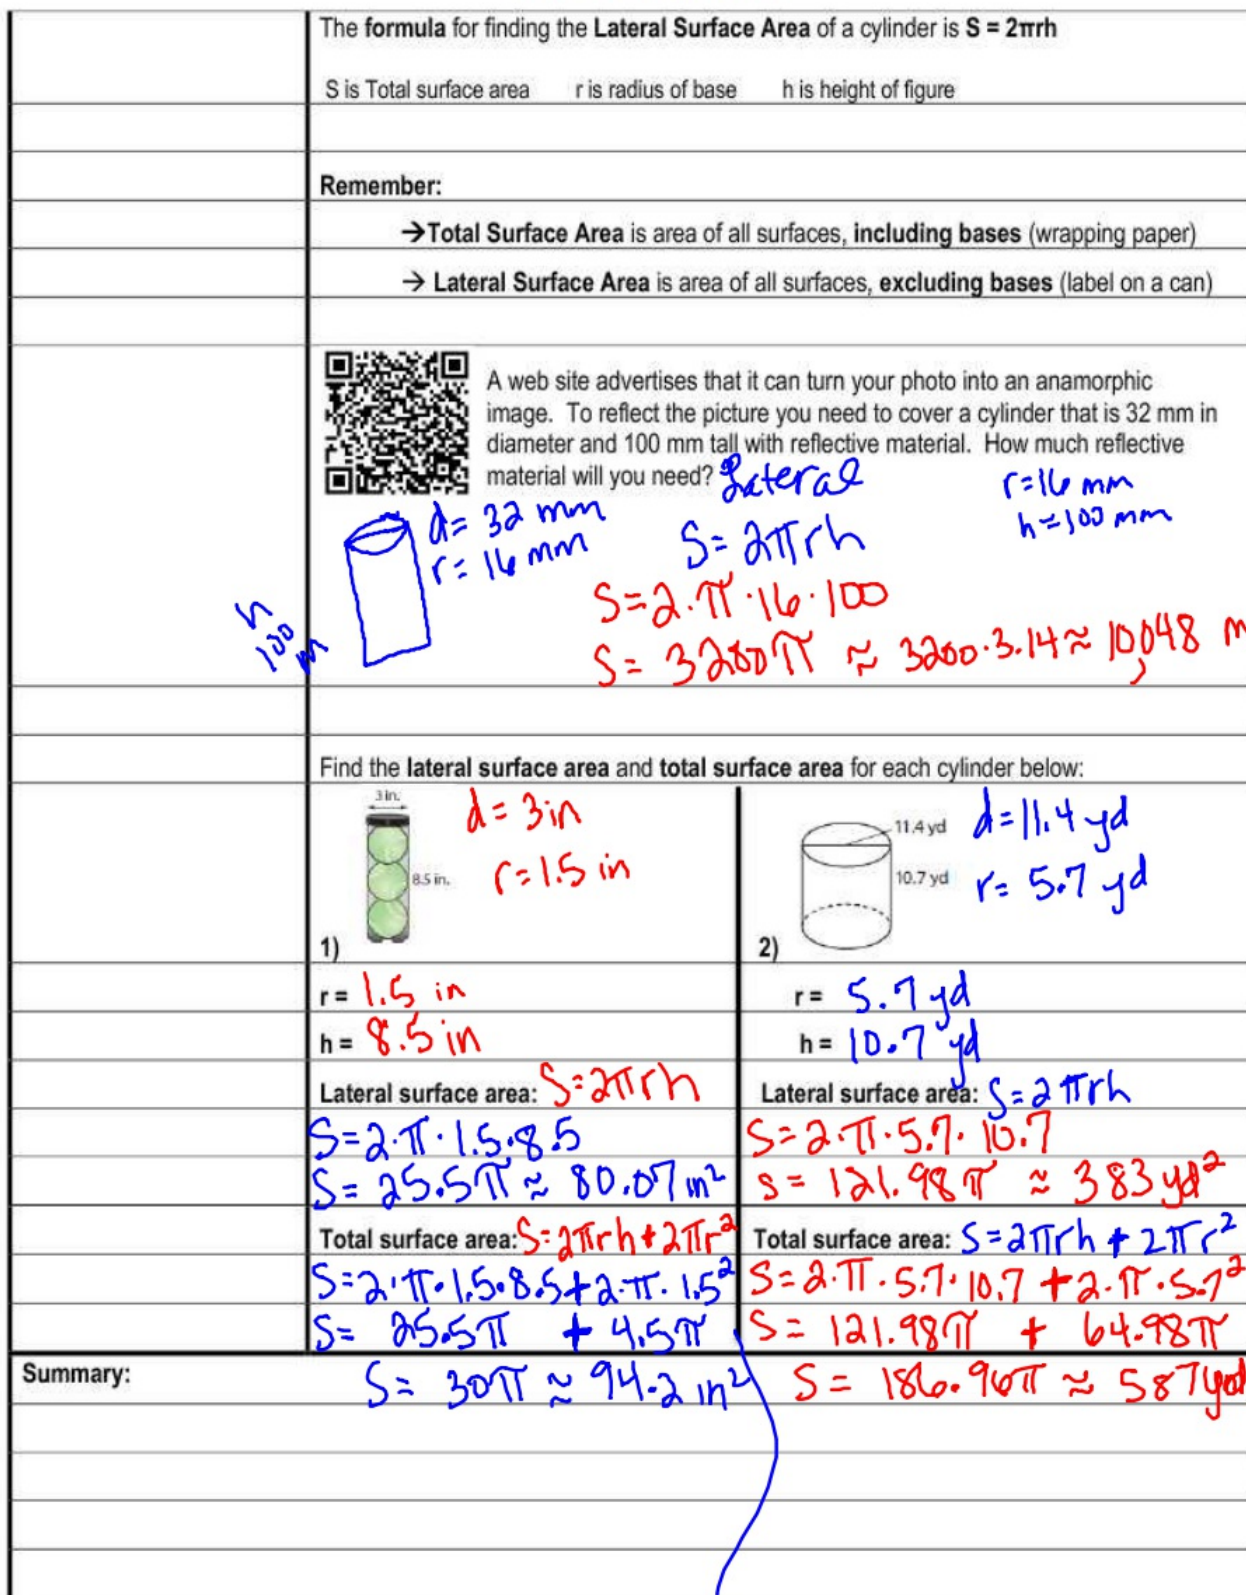 The formula for finding the Lateral Surface Area of a cylinder is S = 2πrh
S is Total surface area r is radius of base h is height of figure
Remember:
→Total Surface Area is area of all surfaces, including bases (wrapping paper)
→ Lateral Surface Area is area of all surfaces, excluding bases (label on a can)
A web site advertises that it can turn your photo into an anamorphic
image. To reflect the picture you need to cover a cylinder that is 32 mm in
diameter and 100 mm tall with reflective material. How much reflective
material will you need? Lateral
r=16 mm
h=100 mm
d= 32 mm
r= 16 mm
h
100
m
S= 2πrh
S=2·π·16·100
S= 3200π ≈ 3200·3.14≈ 10,048 m
Find the lateral surface area and total surface area for each cylinder below:
3 in.
8.5 in.
d= 3in
r=1.5 in
1)
r = 1.5 in
h = 8.5 in
Lateral surface area: S=2πrh
S=2·π·1.5·8.5
S= 25.5π ≈ 80.07 in²
Total surface area: S=2πrh+2πr²
S=2·π·1.5·8.5+2·π·1.5²
S= 25.5π + 4.5π
S= 30π ≈ 94.2 in²
11.4 yd
10.7 yd
d=11.4 yd
r= 5.7 yd
2)
r = 5.7 yd
h = 10.7 yd
Lateral surface area: S=2πrh
S=2·π·5.7·10.7
s= 121.98π ≈ 383 yd²
Total surface area: S=2πrh + 2πr²
S=2·π·5.7·10.7 +2·π·5.7²
S= 121.98π + 64.98π
S= 186.96π ≈ 587yd
Summary: